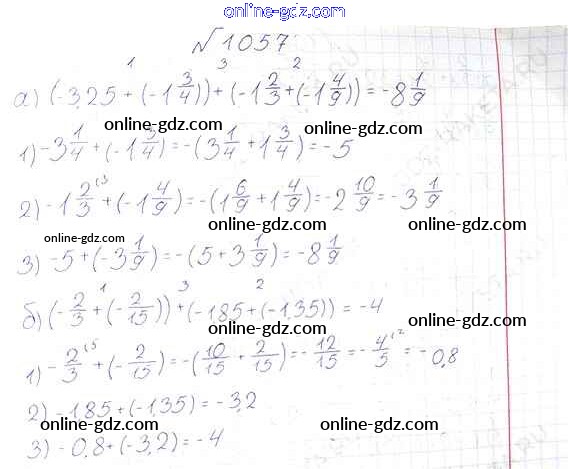 online-gdz.com
№1057
1 3 2
а) (-3,25 + (-1 3/4)) + (-1 2/3 + (-1 4/9)) = -8 1/9
online-gdz.com online-gdz.com
1) -3 1/4 + (-1 3/4) = -(3 1/4 + 1 3/4) = -5
online-gdz.com online-gdz.com
2) -1 2/3 ⁽³ + (-1 4/9) = -(1 6/9 + 1 4/9) = -2 10/9 = -3 1/9
online-gdz.com online-gdz.com
3) -5 + (-3 1/9) = -(5 + 3 1/9) = -8 1/9
1 3 2
б) (-2/3 + (-2/15)) + (-1,85 + (-1,35)) = -4
online-gdz.com online-gdz.com
1) -2/3 ⁽⁵ + (-2/15) = -(10/15 + 2/15) = -12/15 = -4/5 ⁽² = -0,8
online-gdz.com online-gdz.com
2) -1,85 + (-1,35) = -3,2
online-gdz.com online-gdz.com
3) -0,8 + (-3,2) = -4
online-gdz.com